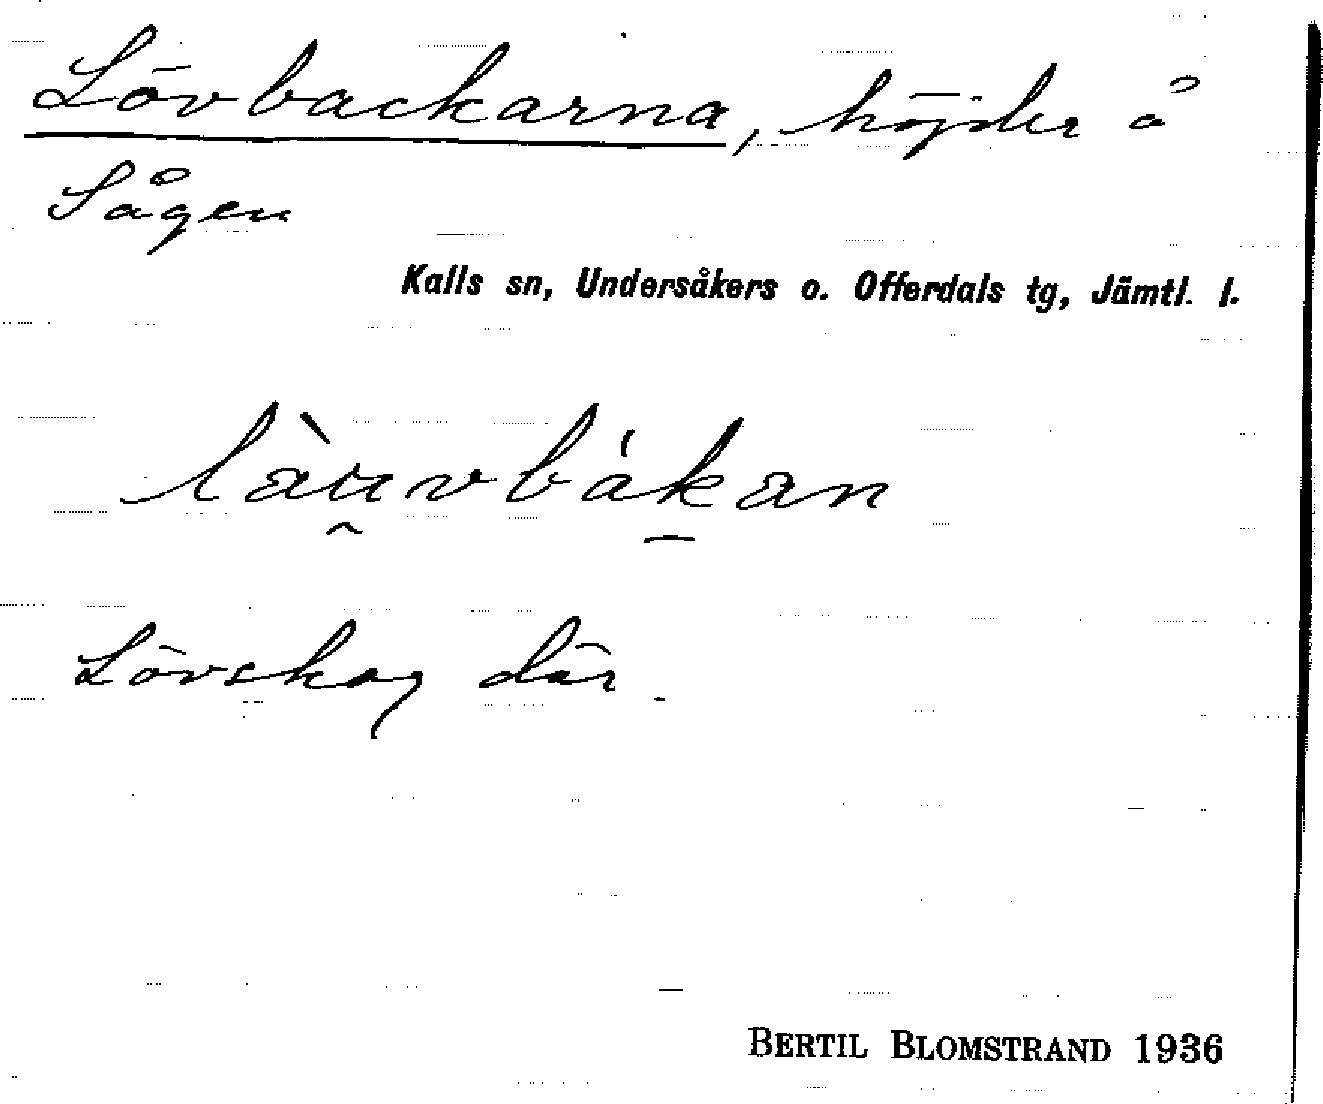 Lövbackarna, höjder å
Sågen
Kalls sn, Undersåkers o. Offerdals tg, Jämtl. l.
làu̯vbák̲an
Lövskog där.
BERTIL BLOMSTRAND 1936